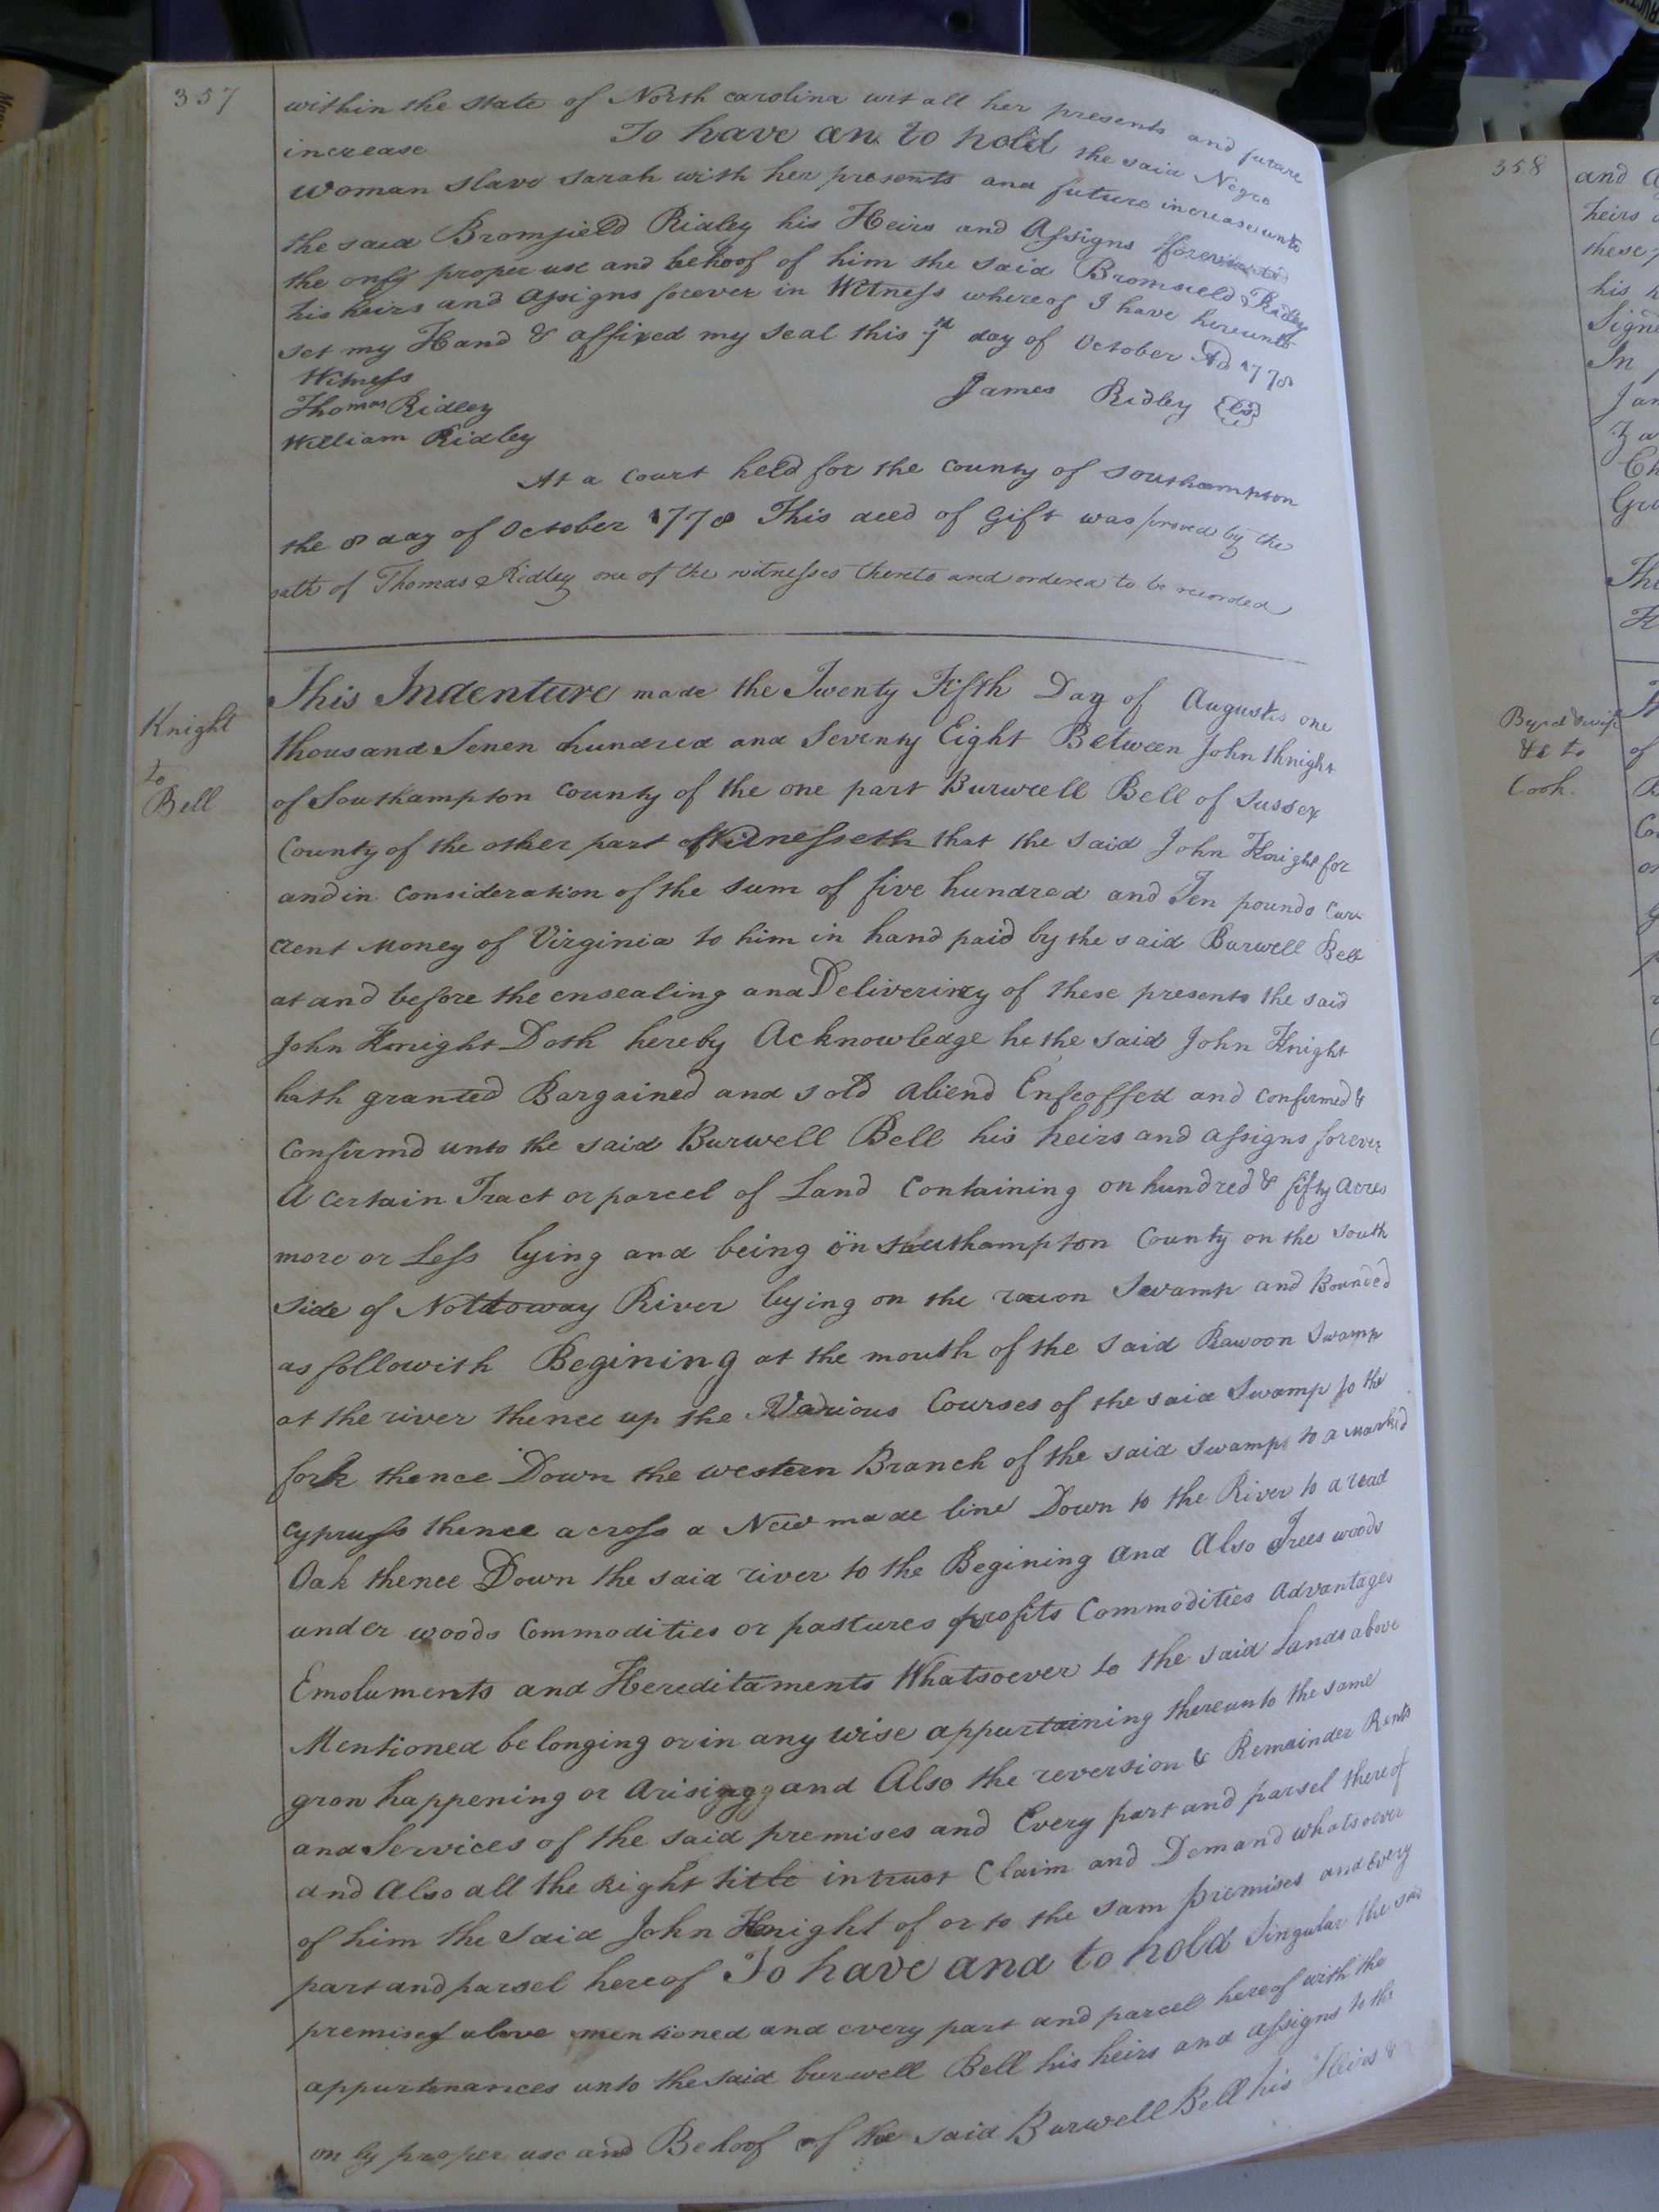 357
within the state of North carolina wit all her presents and future
increase To have an to hold the said Negro
woman slave sarah with her presents and future increase unto
the said Bromfield Ridley his Heirs and Assigns forever
the only proper use and behoof of him the said Bromfield Ridley
his heirs and assigns forever in Witness whereof I have hereunto
set my Hand & affixed my seal this 7th day of October Ad 1778
Witness
James Ridley (LS)
Thomas Ridley
William Ridley
At a Court held for the County of Southampton
the 8 day of October 1778 This deed of Gift was proved by the
oath of Thomas Ridley one of the witnesses thereto and ordered to be recorded
Knight
to
Bell
This Indenture made the Twenty Fifth Day of Augusts one
thousand Seven hundred and Seventy Eight Between John Knight
of Southampton County of the one part Burwell Bell of Sussex
County of the other part Witnesseth that the said John Knight for
and in Consideration of the sum of five hundred and Ten pounds Cur
rent Money of Virginia to him in hand paid by the said Burwell Bell
at and before the ensealing and Delivering of these presents the said
John Knight Doth hereby Acknowledge he the said John Knight
hath granted Bargained and sold aliend Enfeoffed and Confirmed &
Confirmd unto the said Burwell Bell his heirs and assigns forever
A certain Tract or parcel of Land Containing on hundred & fifty Acres
more or Less lying and being in Southampton County on the South
side of Nottoway River lying on the racon Swamp and Bounded
as followith Begining at the mouth of the said Rawoon Swamp
at the river thence up the Various Courses of the said Swamp to the
fork thence Down the western Branch of the said swamp to a marked
cypruss thence across a New made line Down to the River to a read
Oak thence Down the said river to the Begining and Also Trees woods
under woods Commodities or pastures profits Commodities advantages
Emoluments and Hereditaments Whatsoever to the said Lands above
Mentioned belonging or in any wise appurtaining thereunto the same
gron happening or arising and Also the reversion & Remainder Rents
and Services of the said premises and Every part and parsel thereof
and Also all the Right title intrust Claim and Demand whatsoever
of him the said John Knight of or to the sam premises and every
part and parsel hereof To have and to hold Singular the said
premises above mentioned and every part and parcel hereof with the
appurtenances unto the said burwell Bell his heirs and assigns to the
only proper use and Behoof of the said Burwell Bell his Heirs &
358
and
heirs
these
his
Signe
In
Jam
Byrd &
&c to
Cooh.
of